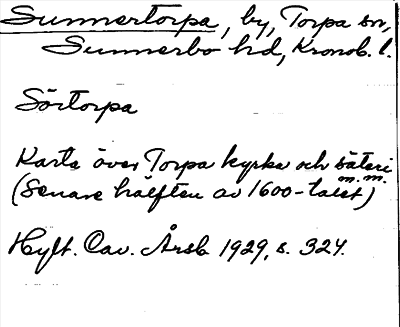 Sunnertorpa, by, Torpa sn,
Sunnerbo hd, Kronob. l.
Sörtorpa
Karta över Torpa kyrka och säteri m.m.
(Senare hälften av 1600-talet)
Hylt. Cav. Årsb 1929, s. 324.